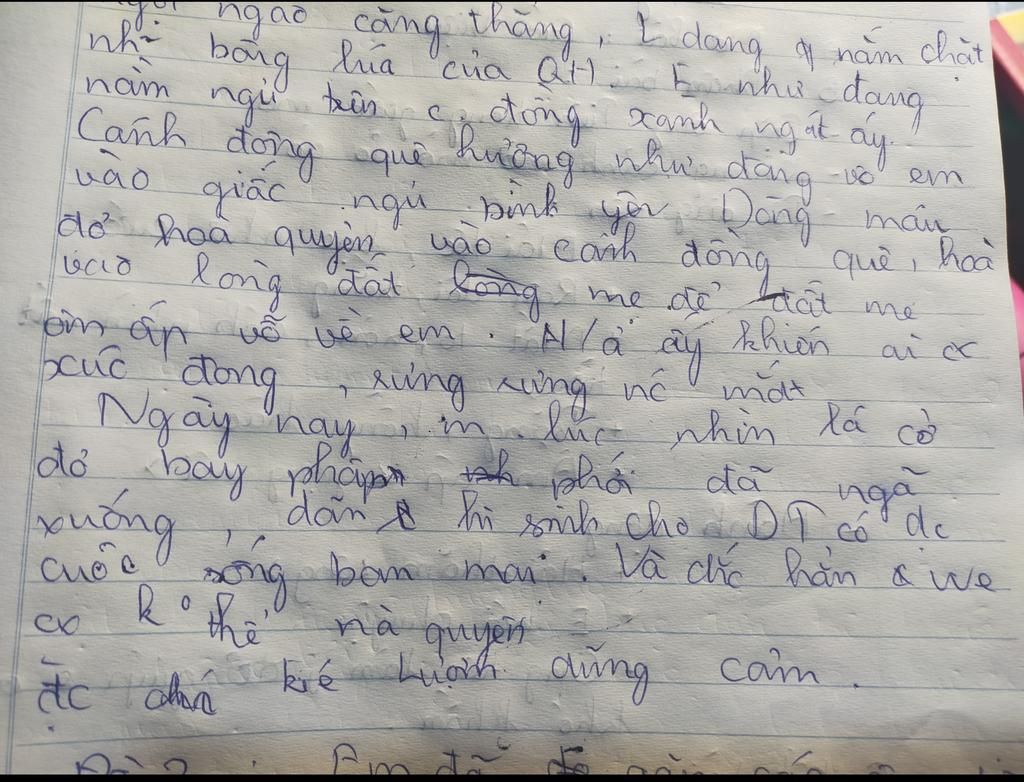 ngào căng thẳng, L đang nắm chặt
nh~ bông lúa của QH. E như đang
nằm ngủ trên c. đồng xanh ngát ấy.
Cánh đồng quê hương như đang vỗ em
vào giấc ngủ bình yên. Dòng máu
đỏ hoà quyện vào cánh đồng quê, hoà
vào lòng đất mẹ để đất mẹ
ôm ấp vỗ về em. H/ả ấy khiến ai cx
xúc đong, rưng rưng nc mắt
Ngày nay, m. lúc nhìn lá cờ
đỏ bay phấp phới đã ngã
xuống, dân hi sinh cho DT có đc
cuộc sống bom mai. Và chắc hẳn we
cx k° thể nà quyên
đc chú bé Lượm dũng cảm.
Em đã